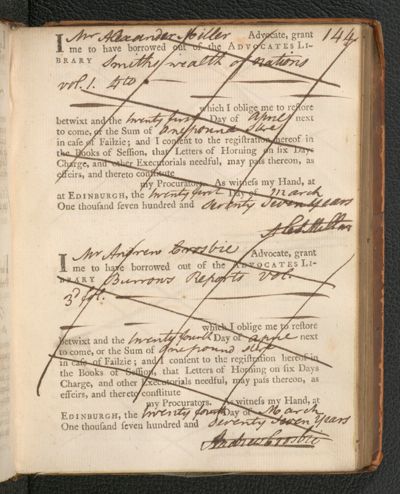 144
I Mr Alexander Miller Advocate, grant
me to have borrowed out of the ADVOCATES LI-
BRARY Smiths wealth of nations
vol. 1. 4to
which I oblige me to restore
betwixt and the twenty first Day of aprile next
to come, or the Sum of one pound
in case of Failzie; and I consent to the registration hereof in
the Books of Session, that Letters of Horning on six Days
Charge, and other Executorials needful, may pass thereon, as
effeirs, and thereto constitute
my Procurators. As witness my Hand, at
at EDINBURGH, the twenty first Day of March
One thousand seven hundred and Seventy Seven years
I Mr Andrew Crosbie Advocate, grant
me to have borrowed out of the ADVOCATES LI-
BRARY Burrows Reports vol.
3d fol.
which I oblige me to restore
betwixt and the twenty fourth Day of aprile next
to come, or the Sum of one pound
in case of Failzie; and I consent to the registration hereof in
the Books of Session, that Letters of Horning on six Days
Charge, and other Executorials needful, may pass thereon, as
effeirs, and thereto constitute
my Procurators. As witness my Hand, at
EDINBURGH, the twenty fourth Day of March
One thousand seven hundred and Seventy Seven years
Andrew Crosbie